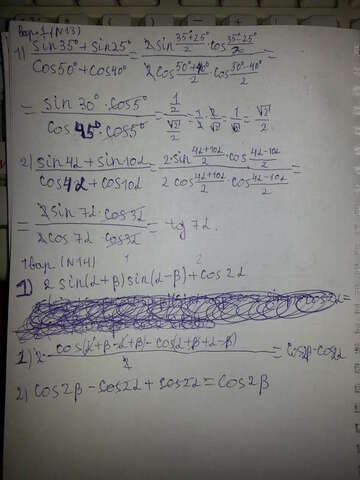 Вар. 1 (N13)
1) (sin35° + sin25°)/(cos50° + cos40°) = (2sin (35°+25°)/2 · cos (35°-25°)/2)/(2cos (50°+40°)/2 · cos (50°-40°)/2) =
= (sin 30° · cos5°)/(cos 45° · cos5°) = (1/2)/(√2/2) = 1/2 · 2/√2 = 1/√2 = √2/2.
2) (sin4α + sin10α)/(cos4α + cos10α) = (2·sin (4α+10α)/2 · cos (4α-10α)/2)/(2cos (4α+10α)/2 · cos (4α-10α)/2) =
= (2sin7α · cos3α)/(2cos7α · cos3α) = tg7α.
1 вар. (N14)
1 2
1) 2 sin(α+β) sin(α-β) + cos2α
1) 2· (cos(α+β-α+β) - cos(α+β+α-β))/2 = cos2β - cos2α
2) cos2β - cos2α + cos2α = cos2β